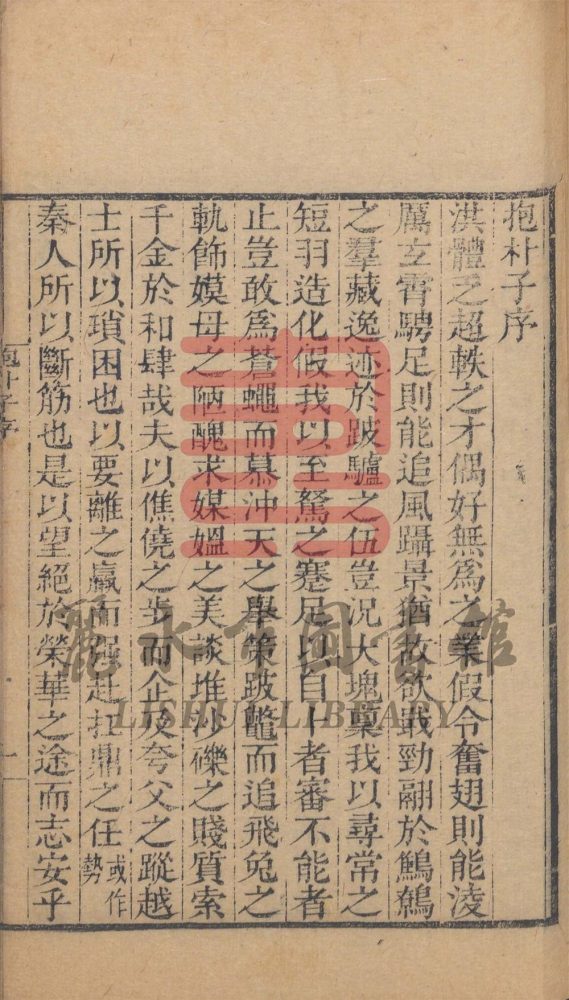 抱朴子序
洪體乏超軼之才偶好無爲之業假令奮翅則能淩
厲玄霄騁足則能追風躡景猶故欲戢勁翮於鷦鷯
之羣藏逸迹於跛驢之伍豈況大塊稟我以尋常之
短羽造化假我以至駑之蹇足以自卜者審不能者
止豈敢爲蒼蠅而慕沖天之舉策跛鼈而追飛兔之
軌飾嫫母之陋醜求媒媼之美談堆沙礫之賤質索
千金於和肆哉夫以僬僥之步而企及夸父之蹤越
士所以瑣困也以要離之羸而强赴扛鼎之任或作勢
秦人所以斷筋也是以望絕於榮華之途而志安乎
抱朴子序
一
麗水市圖書館
LISHUI LIBRARY